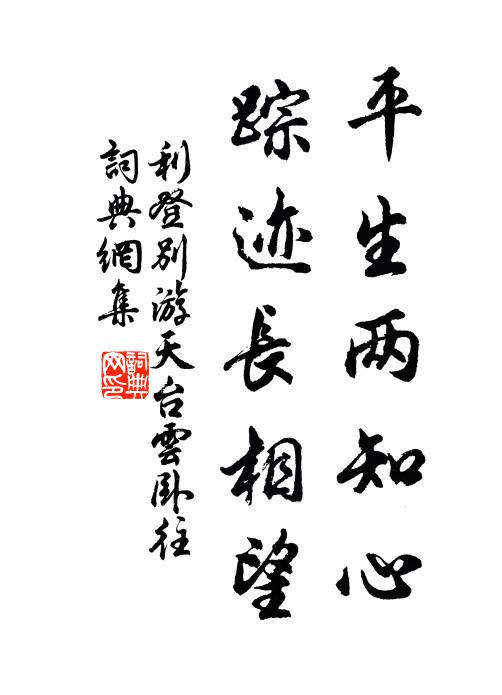 平生两知心
踪迹長相望
利登别游天台雲卧往
詞典網集
詞典
网印